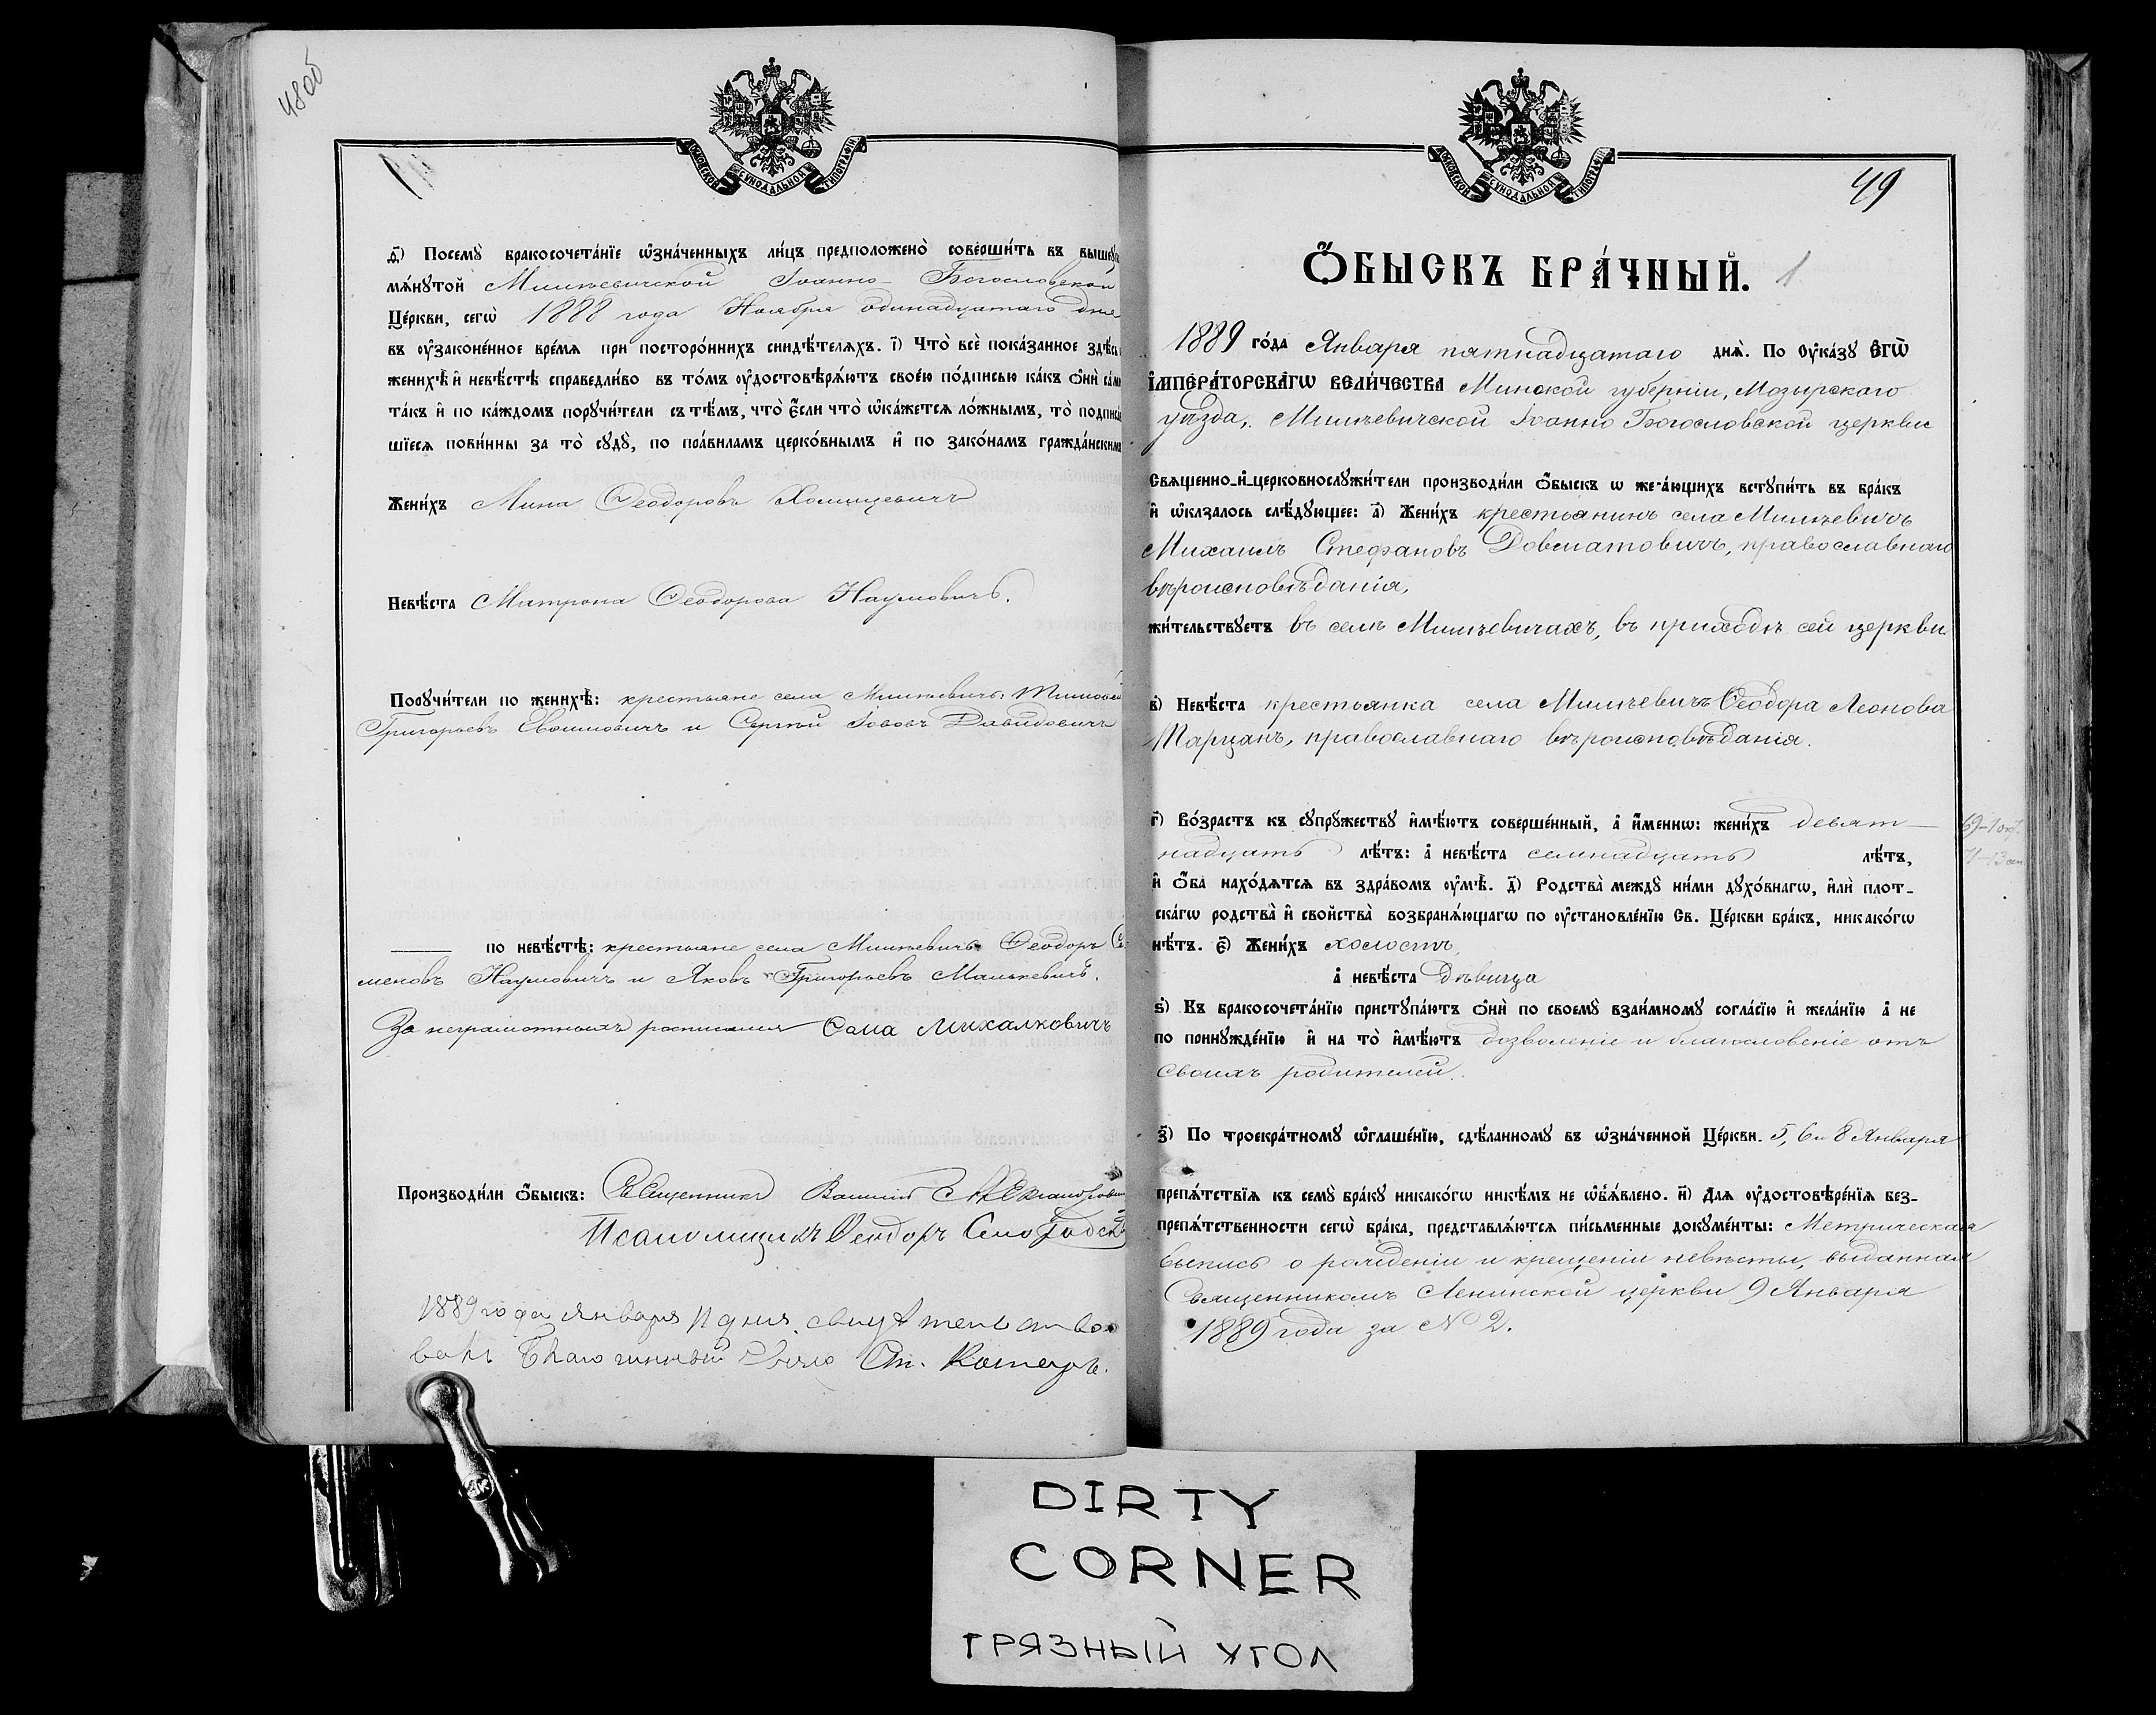 48об
МОСКОВСКОЙ СѴНОДАЛЬНОЙ ТИПОГРАФІИ
д҃) Посемꙋ̀ бракосочета́нїе ѡ҆зна́ченныхъ ли́цъ предположено̀ соверши́ть въ вышеꙋпо
мѧ́нꙋтой Милѣевичской Іоанно-Богословской
Це́ркви, сегѡ̀ 1888 года Ноября одинадцатаго дня
въ ᲂу҆законе́нное вре́мѧ при посторо́ннихъ свидѣ́телѧхъ. і҃) Что̀ всѐ пока́занное здѣ́сь
женихѣ̀ и҆ невѣ́стѣ справедли́во въ то́мъ ᲂу҆достовѣрѧ́ютъ свое́ю по́дписью ка́къ ѻ҆нѝ са́ми
та́къ и҆ по ка́ждомъ порꙋчи́тели съ тѣ́мъ, что̀ є҆́сли что̀ ѡ҆ка́жетсѧ ло́жнымъ, то̀ подписа́в
шїесѧ пови́нны за то̀ сꙋдꙋ̀, по пра́виламъ церко́внымъ и҆ по зако́намъ гражда́нскимъ
Жени́хъ Мина Ѳеодоровъ Холицевичъ
Невѣ́ста Матрона Ѳеодорова Наумовичъ.
Порꙋчи́тели по женихѣ̀: крестьяне села Милѣевичъ: Тимоѳей
Григорьевъ Евтиновичъ и Сергѣй Іововъ Давидовичъ
по невѣ́стѣ: крестьяне села Милѣевичъ Ѳеодоръ Се-
меновъ Наумовичъ и Яковъ Григорьевъ Манкевичъ.
За неграмотныхъ росписался Сома Михалковичъ
Производи́ли ѻ҆́быскъ: Священникъ Василій Александровичъ
Псаломщикъ Ѳеодоръ
1889 года Января 11 дня, свидѣтельство-
валъ Благочинный Свящ. Ст. Кострецъ.
МОСКОВСКОЙ СѴНОДАЛЬНОЙ ТИПОГРАФІИ
49
Ѻ҆́БЫСКЪ БРА́ЧНЫЙ. 1
1889 го́да Января пятнадцатаго днѧ̀. По ᲂу҆ка́зꙋ Є҆ГѠ̀
І҆МПЕРА́ТОРСКАГѠ ВЕЛИ́ЧЕСТВА Минской губерніи, Мозырскаго
уѣзда, Милѣевичской Іоанно Богословской церкви
Свѧщенно-и҆-церковнослꙋжи́тели производи́ли ѻ҆́быскъ ѡ же-а́ющихъ встꙋпи́ть въ бра́къ
и҆ ѡ҆казалось слѣ́дꙋющее: а҃) Жени́хъ крестьянинъ села Милѣевичъ
Михаилъ Стефановъ Довматовичъ, православнаго
вѣроисповѣданія,
жи́тельствꙋетъ въ селѣ Милѣевичахъ, въ приходѣ сей церкви
в҃) Невѣ́ста крестьянка села Милѣевичъ Ѳеодора Леонова
Тарцанъ, православнаго вѣроисповѣданія.
г҃) Во́зрастъ къ сꙋпрꙋжествꙋ и҆мѣ́ютъ соверше́нный, а҆ и҆́меннѡ: жени́хъ девят-
надцать лѣ́тъ: а҆ невѣ́ста семнадцать лѣ́тъ,
69-1 окт.
71-13 сен
и҆ ѻ҆́ба нахо́дѧтсѧ въ здра́вомъ ᲂу҆мѣ̀. д҃) Родства̀ междꙋ̀ ни́ми дꙋхо́внагѡ, и҆лѝ плот-
ска́гѡ родства̀ и҆ свойства̀ возбранѧ́ющагѡ по ᲂу҆становле́нїю Св. Це́ркви бра́къ, никако́гѡ
нѣ́тъ. є҃) Жени́хъ холостъ
а҆ невѣ́ста дѣвица
ѕ҃) Къ бракосочета́нїю пристꙋпа́ютъ ѻ҆нѝ по своемꙋ̀ взаи́мномꙋ согла́сїю и҆ жела́нїю а҆ не
по принꙋжде́нїю и҆ на то̀ и҆мѣ́ютъ дозволеніе и благословеніе отъ
своихъ родителей.
з҃) По троекра́тномꙋ ѡ҆глаше́нїю, сдѣ́ланномꙋ въ ѡ҆зна́ченной Це́ркви. 5, 6 и 8 Января
препѧ́тствїѧ къ семꙋ̀ бра́кꙋ никако́гѡ никѣ́мъ не ѡ҆б̾ѧ́влено. и҃) Длѧ ᲂу҆достовѣре́нїѧ без-
препѧ́тственности сегѡ̀ бра́ка, представлѧ́ютсѧ пи́сьменные докꙋме́нты: Метрическая
выпись о рожденіи и крещеніи невѣсты, выданная
Священникомъ Ленинской церкви 9 Января
1889 года за № 2.
DIRTY
CORNER
ГРЯЗНЫЙ УГОЛ